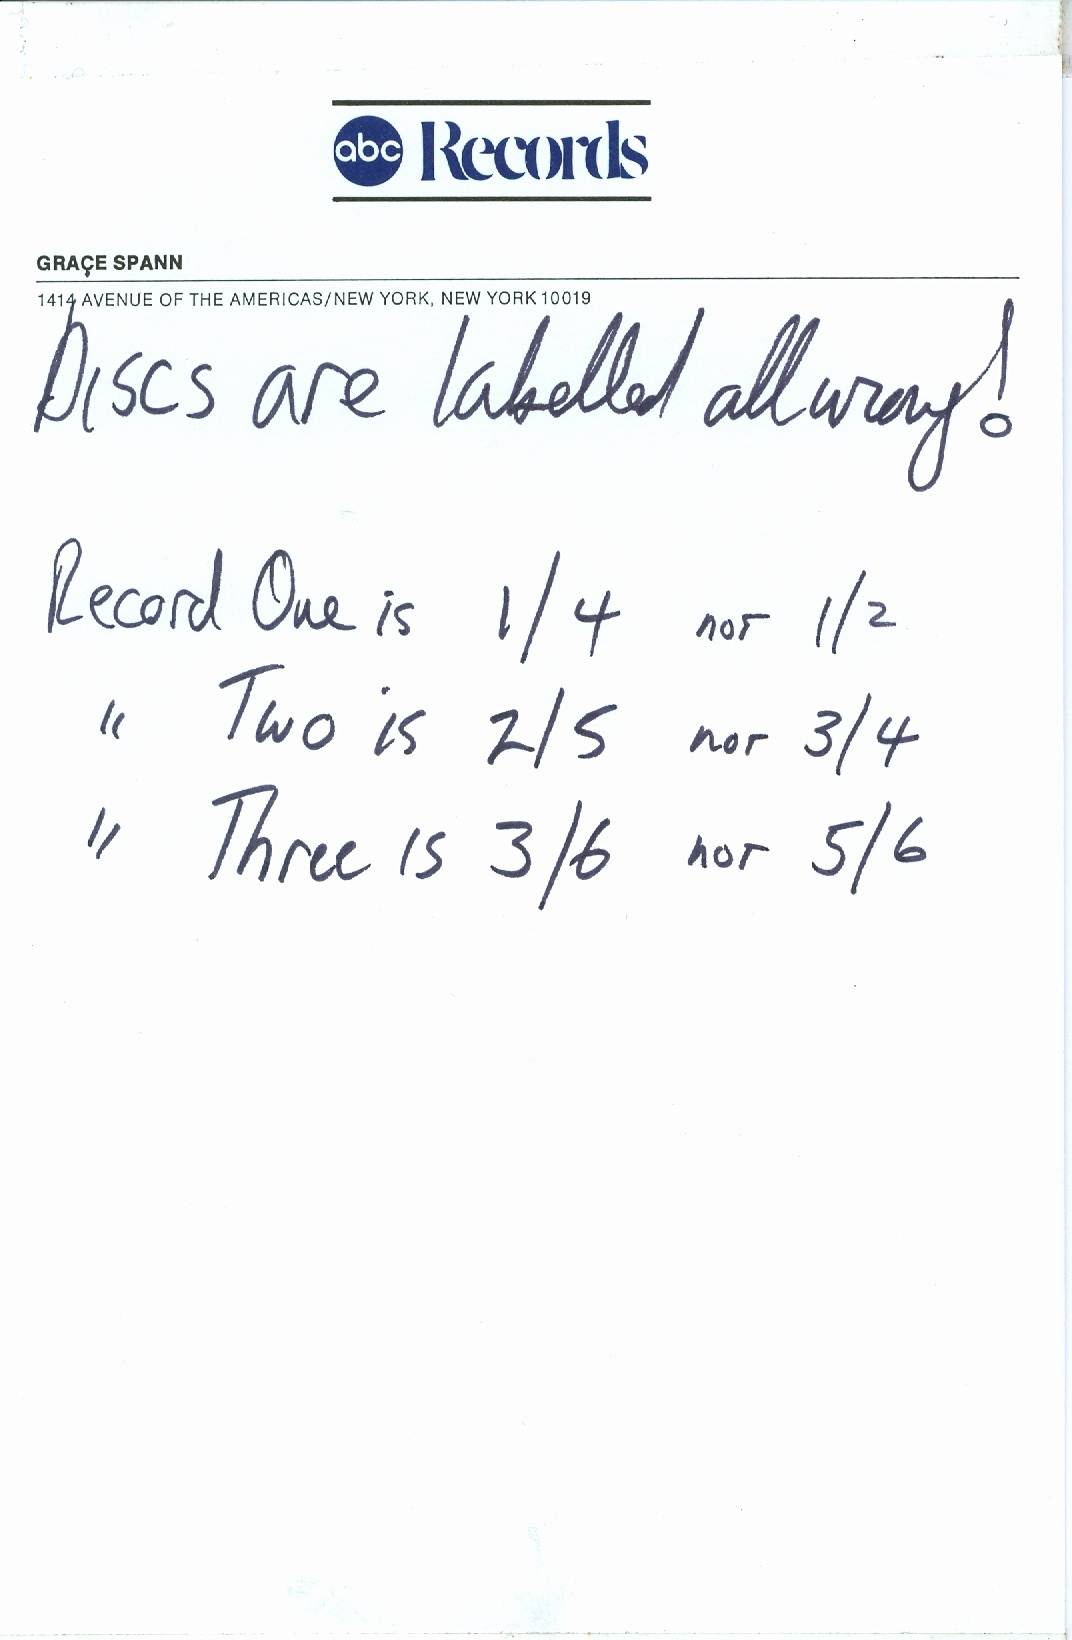 abc Records
GRACE SPANN
1414 AVENUE OF THE AMERICAS/NEW YORK, NEW YORK 10019
Discs are labelled all wrong!
Record One is 1/4 not 1/2
" Two is 2/5 nor 3/4
" Three is 3/6 nor 5/6